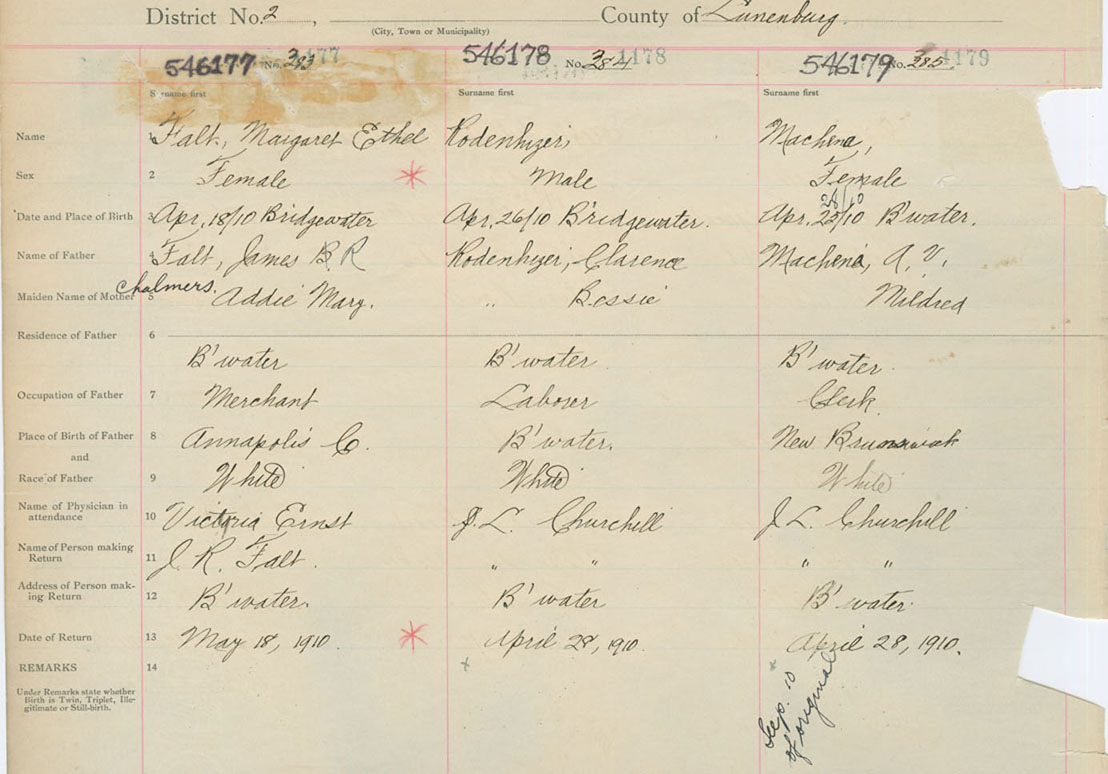 District No. 2, County of Lunenburg.
(City, Town or Municipality)
546177 No. 383 1177 546178 No. 384 1178 546179 No. 385 1179
Surname first Surname first Surname first
Name 1 Falt, Margaret Ethel Rodenhizer, Machena,
Sex 2 Female Male Female
28/10
Date and Place of Birth 3 Apr, 18/10 Bridgewater Apr, 26/10 B'ridgewater. Apr. B'water.
Name of Father 4 Falt, James B R Rodenhizer, Clarence Machena, A. V.
Chalmers.
Maiden Name of Mother 5 Addie Mary. " Bessie Mildred
Residence of Father 6
B'water B'water B'water.
Occupation of Father 7 Merchant Laborer Clerk.
Place of Birth of Father 8 Annapolis Co. B'water. New Brunswick
and
Race of Father 9 White White White
Name of Physician in
attendance 10 Victoria Ernst J. L. Churchill J. L. Churchill
Name of Person making
Return 11 J. R. Falt. " " " "
Address of Person mak-
ing Return 12 B'water. B'water B'water.
Date of Return 13 May 18, 1910. April 28, 1910. April 28, 1910.
REMARKS 14
Under Remarks state whether
Birth is Twin, Triplet, Ille-
gitimate or Still-birth.
10
of original